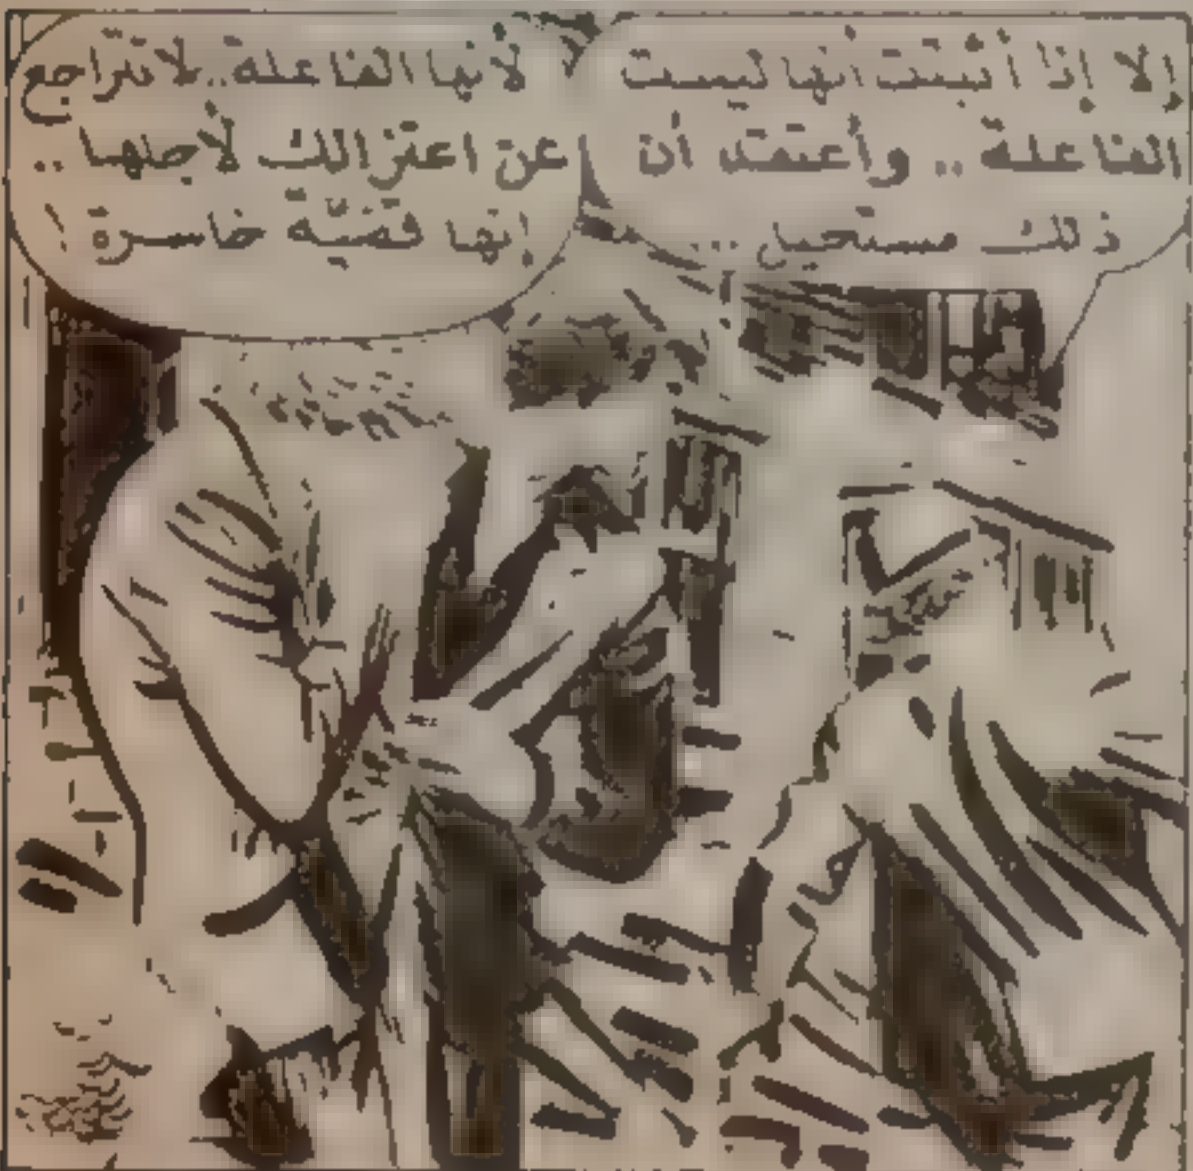 إلا إذا أثبتت أنها ليست
الفاعلة .. وأعتقد أن
ذلك مستحيل ...
لأنها الفاعلة..لا تتراجع
عن اعتزالك لأجلها ..
إنها قضيّة خاسرة !